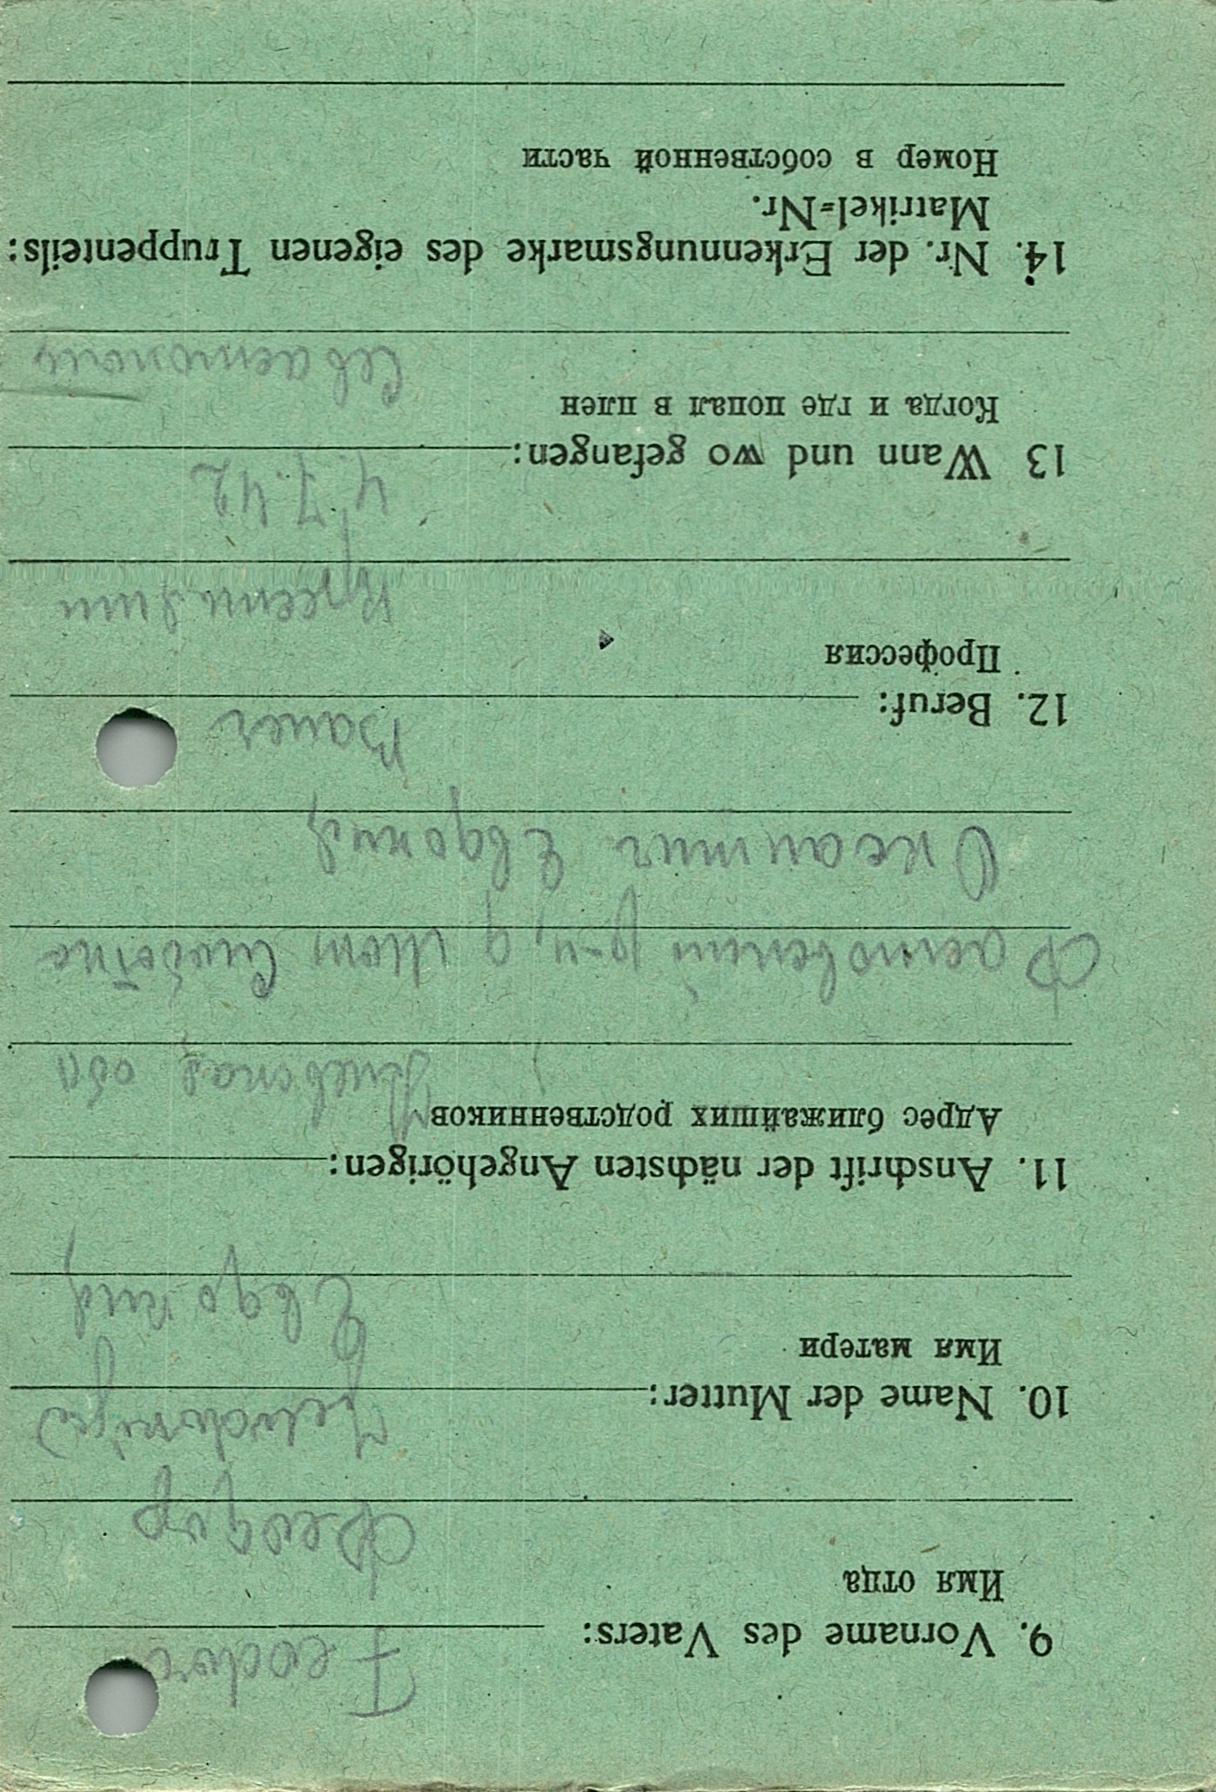 9. Vorname des Vaters: Feodor
Имя отца
Феодор
10. Name der Mutter:
Имя матери
Евдокия
11. Anschrift der nächsten Angehörigen:
Адрес ближайших родственников
Киевская обл
р-н
Евдокия
12. Beruf: Bauer
Профессия
Крестьянин
13 Wann und wo gefangen: 4 7. 42
Когда и где попал в плен
Севастополь
14. Nr. der Erkennungsmarke des eigenen Truppenteils:
Matrikel=Nr.
Номер в собственной части